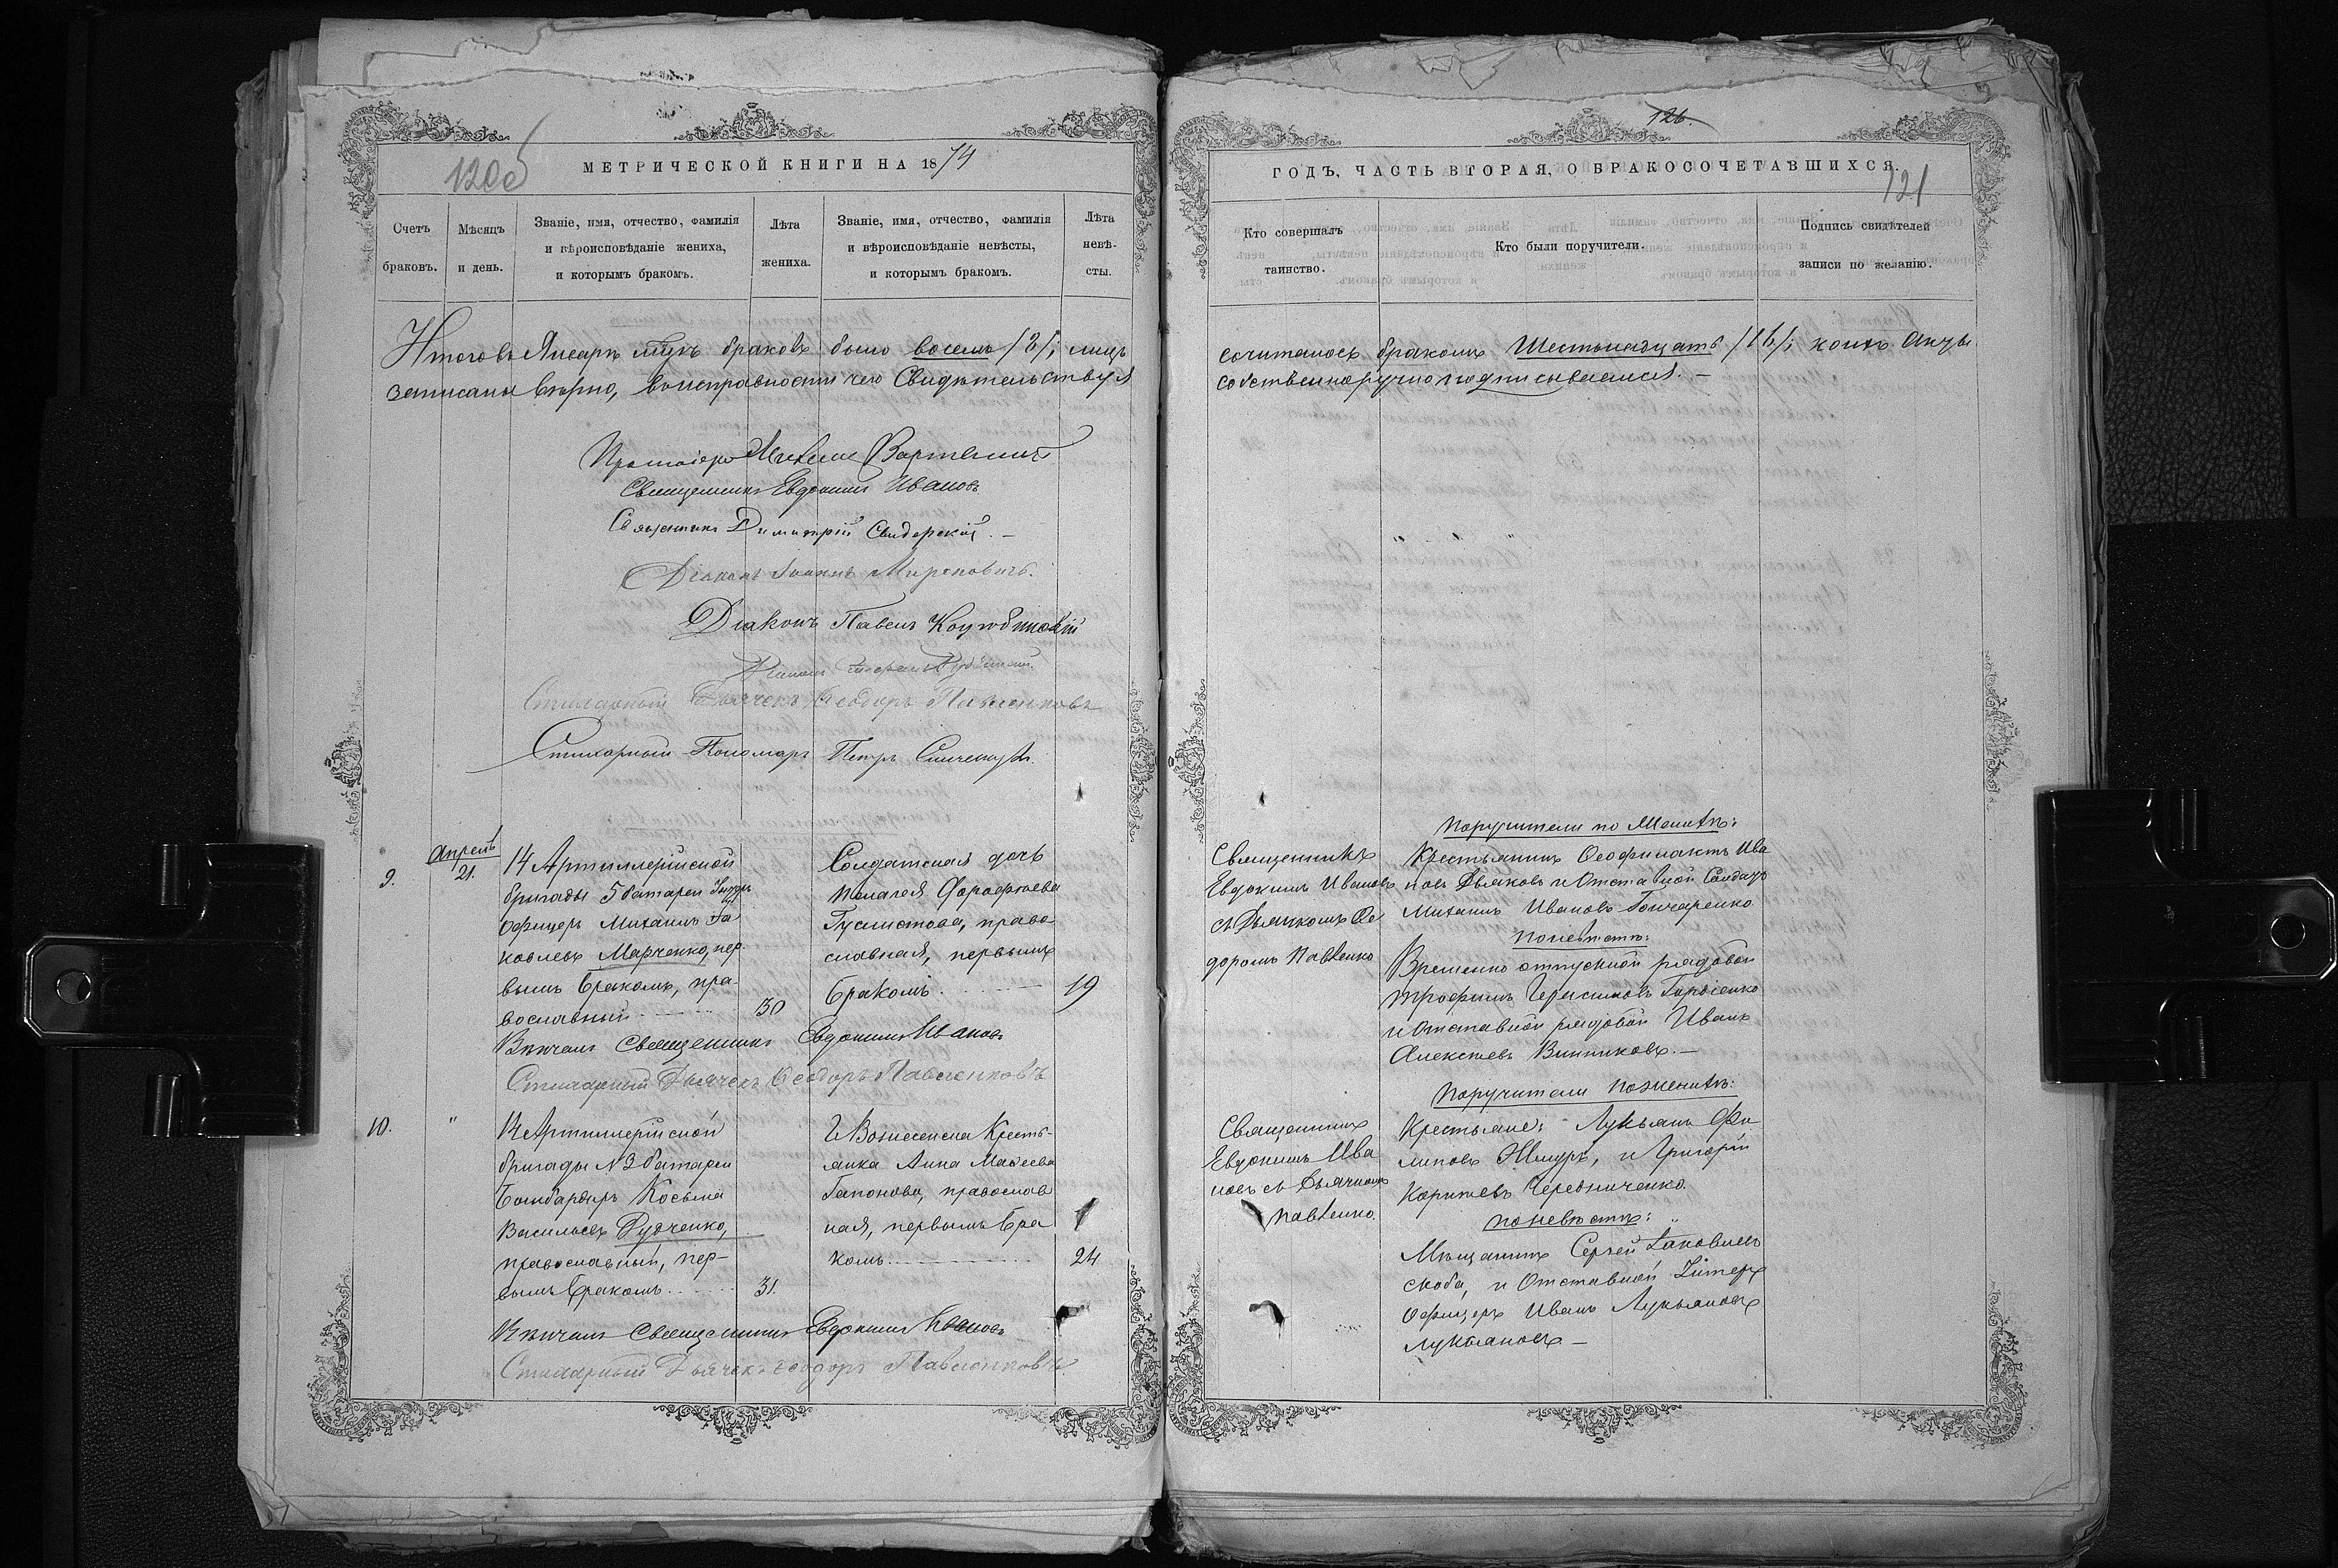 120об
МЕТРИЧЕСКОЙ КНИГИ НА 1874
Счетъ браковъ.
Мѣсяцъ и день.
Званіе, имя, отчество, фамилія
и вѣроисповѣданіе жениха,
и которымъ бракомъ.
Лѣта жениха.
Званіе, имя, отчество, фамилія
и вѣроисповѣданіе невѣсты,
и которымъ бракомъ.
Лѣта невѣ-
сты.
Итого въ Январѣ мцѣ браковъ было восемь /8/; лицъ
записаны вѣрно, въ исправности чего Свидѣтельствуя
Протоіерей
Священникъ Евдокимъ Ивановъ
Священникъ Димитрій Свидерскій. —
Діаконъ Іоаннъ Мироновичъ.
Діаконъ Павелъ
Стихарный Дьячекъ Ѳеодоръ Павленковъ
Стихарный Пономарь Петръ
9.
Апрель
21.
14 Артиллерійской
бригады 5 батареи Унтеръ
Офицеръ Михаилъ Іа
ковлевъ Марченко, пер-
вымъ бракомъ, пра-
вославный
30
Солдатская дочь
Пелагея Ѳарафтеева
православная, первымъ
бракомъ
19
Вѣнчалъ Священникъ Евдокимъ Ивановъ
Стихарный Дьячекъ Ѳеодоръ Павленковъ
10.
"
14 Артиллерійской
бригады N 3 батареи
Бомбардиръ Косьма
Васильевъ Рудченко,
православный, пер-
вымъ бракомъ
31.
Г. Вознесенска Кресть-
янка Анна Матѳеева
Гапонова, православ
ная, первымъ бра
комъ
24
Вѣнчалъ Священникъ Евдокимъ Ивановъ
Стихарный Дьячекъ Ѳеодоръ Павленковъ
126.
ГОДЪ, ЧАСТЬ ВТОРАЯ, О БРАКОСОЧЕТАВШИХСЯ.
121
Кто совершалъ
таинство.
Кто были поручители.
Подпись свидѣтелей
записи по желанію.
сочиталось бракомъ Шестьнадцать /16/; коихъ Акты
собственноручно подписывался. —
Священникъ
Евдокимъ Ивановъ
съ Дьячкомъ Ѳе
доромъ Павленко
Поручители по Женихѣ:
Крестьянинъ Ѳеофилактъ Ива
новъ Дьяковъ и Отставной Солдатъ
Михаилъ Ивановъ Гончаренко
по невѣстѣ:
Временно отпускной рядовой
Трофимъ Герасимовъ Гордіенко
и Отставной рядовой Иванъ
Алексѣевъ Винниковъ. —
Священникъ
Евдокимъ Ива
новъ съ Дьячкомъ
Павленко.
Поручители по женихѣ:
Крестьяне: Лукьянъ Фи
липовъ Жмуръ, и Григорій
Корнѣевъ Чередниченко.
по невѣстѣ:
Мѣщанинъ Сергей Іаковлевъ
Скоба, и Отставной Унтеръ
Офицеръ Иванъ Лукьяновъ
Лукьяновъ —